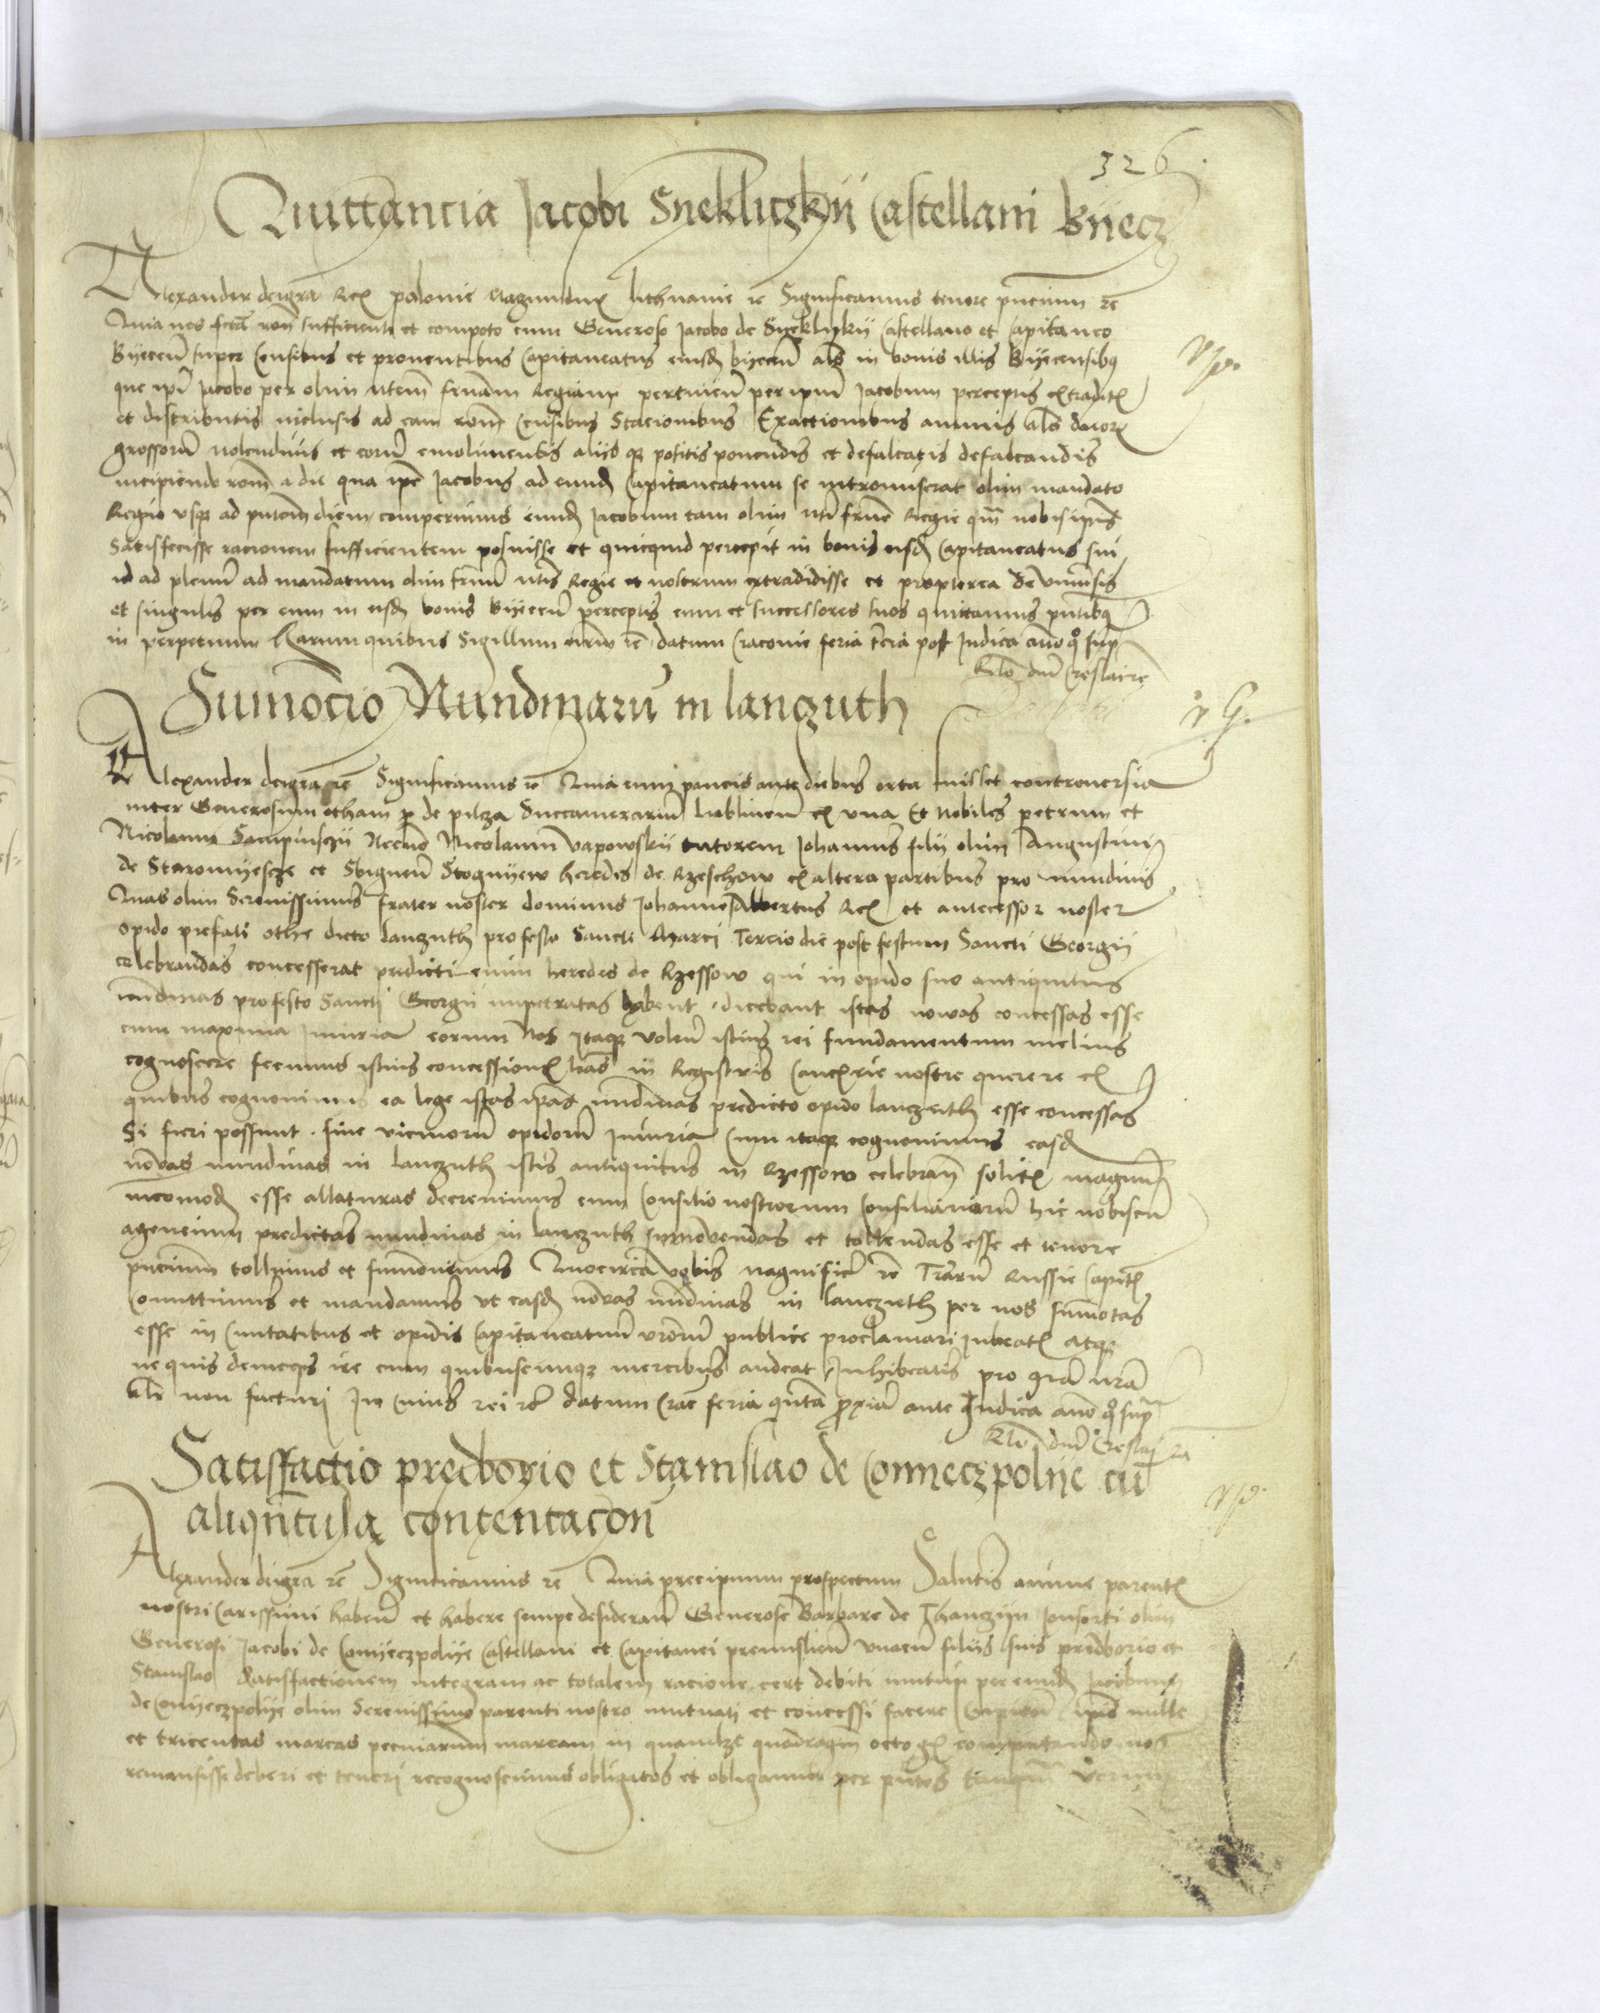 326
Quittancia Jacobi Syekluczkÿ Castellani Byecz
Alexander dei gra Rex polonie Magnus dux lithuanie rc Significamus tenore pncium rc
Quia nos fca ron sufficienti et computo cum Generoso Jacobo de Syeklukÿ Castellano et Capitaneo
Byecen super Censibus et proventibus Capitaneatus eiusd byecen als in bonis illis Byecensibus
que ipi Jacobo per olim ntem frnam Regiam pertinen per ipum Jacobum perceptis extraditis
et distributis inclusis ad eam ronem Censibus Stacionibus Exactionibus annuis als dwory
grossorum molendinis et eorum emolimentis aliis qz positis ponendis et defalcatis defalcandis
incipiendo ronem a die qua ipe Jacobus ad eund Capitaneatum se intromiserat olim mandato
Regio usqz ad pntem diem comperimus eund Jacobum tam olim nti frne Regie qm nobis ipis
Satisfecisse racionem sufficientem posuisse et quicquid percepit in bonis eisd Capitaneatus sui
id ad plenum ad mandatum olim frnum ntis Regie et nostrum extradidisse et propterea de universis
et singulis per eum in eisd bonis Byecen perceptis eum et successores suos quittamus pntibus
in perpetuum Harum quibus Sigillum nrm rc datum Cracovie feria tercia post Judica anno quo sup
Rlo dni Creslai rc
Sumocio Nundinarum in lanczuth
Alexander dei gra rc Significamus rc Quia cum paucis ante diebus orta fuisset controversia
inter Generosum otham de pilcza Succamerarium lublinen ex una Et Nobiles petrum et
Nicolaum Necno Nicolaum Vapowskÿ tutorem Johannis filii olim Augustini
de Staromyescze et Sbigneum Stognyew heredes de Rzeschow ex altera partibus pro nundinis
Quas olim Serenissimus frater noster dominus Johannes Albertus Rex et antecessor noster
opido prefati othe dicto lanczuth pro festo Sancti Marci Tercio die post festum Sancti Georgii
celebrandas concesserat predicti enim heredes de Rzessow qui in opido suo antiquitus
nundinas pro festo Sancti Georgii impetratas habent dicebant istas nowas concessas esse
cum maxima iniuria eorum Nos Itaqz volen istius rei fundamentum melius
cognoscere fecimus istius concessionis lras in Registris Cancellarie nostre querere ex
quibus cognovimus ea lege istas ipas nundinas predicto opido lanczuth esse concessas
Si fieri possunt sine vicinorum opidorum iniuria Cum itaqz cognovimus easd
novas nundinas in lanczuth istis antiquitus in Rzessow celebrari solitis magnum
incomod esse allaturas decrevimus cum Consilio nostrorum Consiliariorum hic nobiscum
agencium predictas nundinas in lanczuth summovendas et tollendas esse et tenore
pncium tollimus et sumovemus Quocirca vobis magnifice rc Trarum Russie Capit
Comittimus et mandamus ut easd novas nundinas in lanczuth per nos summotas
esse in Civitatibus et opidis Capitaneatuum vrorum publice proclamari iubeatis atqz
ne quis deinceps ire cum quibuscumqz mercibus audeat Inhibeatis pro gra nra
alr non facturi In Cuius rei rc datum Crac feria quinta proxima ante Judica anno quo supra
Rlo dni Creslai rc
Satisfactio predborio et Stanislao de Conyeczpolÿe cu
aliqntula contentacon
Alexander dei gra rc Significamus rc Quia precipuum prospectum Salutis anime parentis
nostri Carissimi haben et habere semper desideran Generose Barbare de Thanczÿn Consorti olim
Generosi Jacobi de Conyeczpolÿe Castellani et Capitanei premislien unacum filiis suis predborio et
Stanislao Satisfactionem integram ac totalem racione cert debiti mutui per eund Jacobum
de Conyeczpolÿe olim Serenissimo parenti nostro mutuati et concessi facere ipis mille
et tricentas marcas pecuniarum marcam in quamlibet quadraginta octo gr computando nos
remansisse deberi et teneri recognoscimus obligatos et obligamur per pntes